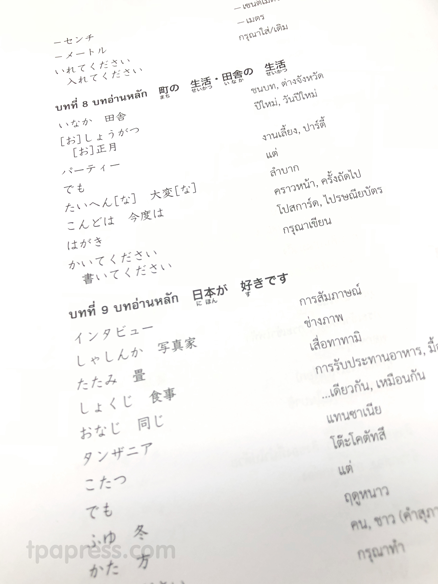 －センチ －เซนติเมตร
－メートル －เมตร
いれてください กรุณาใส่/เติม
入れてください
บทที่ 8 บทอ่านหลัก 町の 生活・田舎の 生活
まち せいかつ いなか せいかつ
いなか 田舎 ชนบท, ต่างจังหวัด
[お]しょうがつ ปีใหม่, วันปีใหม่
[お]正月
パーティー งานเลี้ยง, ปาร์ตี้
でも แต่
たいへん[な] 大変[な] ลำบาก
こんどは 今度は คราวหน้า, ครั้งถัดไป
はがき โปสการ์ด, ไปรษณียบัตร
かいてください กรุณาเขียน
書いてください
บทที่ 9 บทอ่านหลัก 日本が 好きです
にほん す
インタビュー การสัมภาษณ์
しゃしんか 写真家 ช่างภาพ
たたみ 畳 เสื่อทาทามิ
しょくじ 食事 การรับประทานอาหาร,
おなじ 同じ ...เดียวกัน, เหมือนกัน
タンザニア แทนซาเนีย
こたつ โต๊ะโคตัทสึ
でも แต่
ふゆ 冬 ฤดูหนาว
かた 方 คน, ชาว
กรุณาทำ
tpapress.com